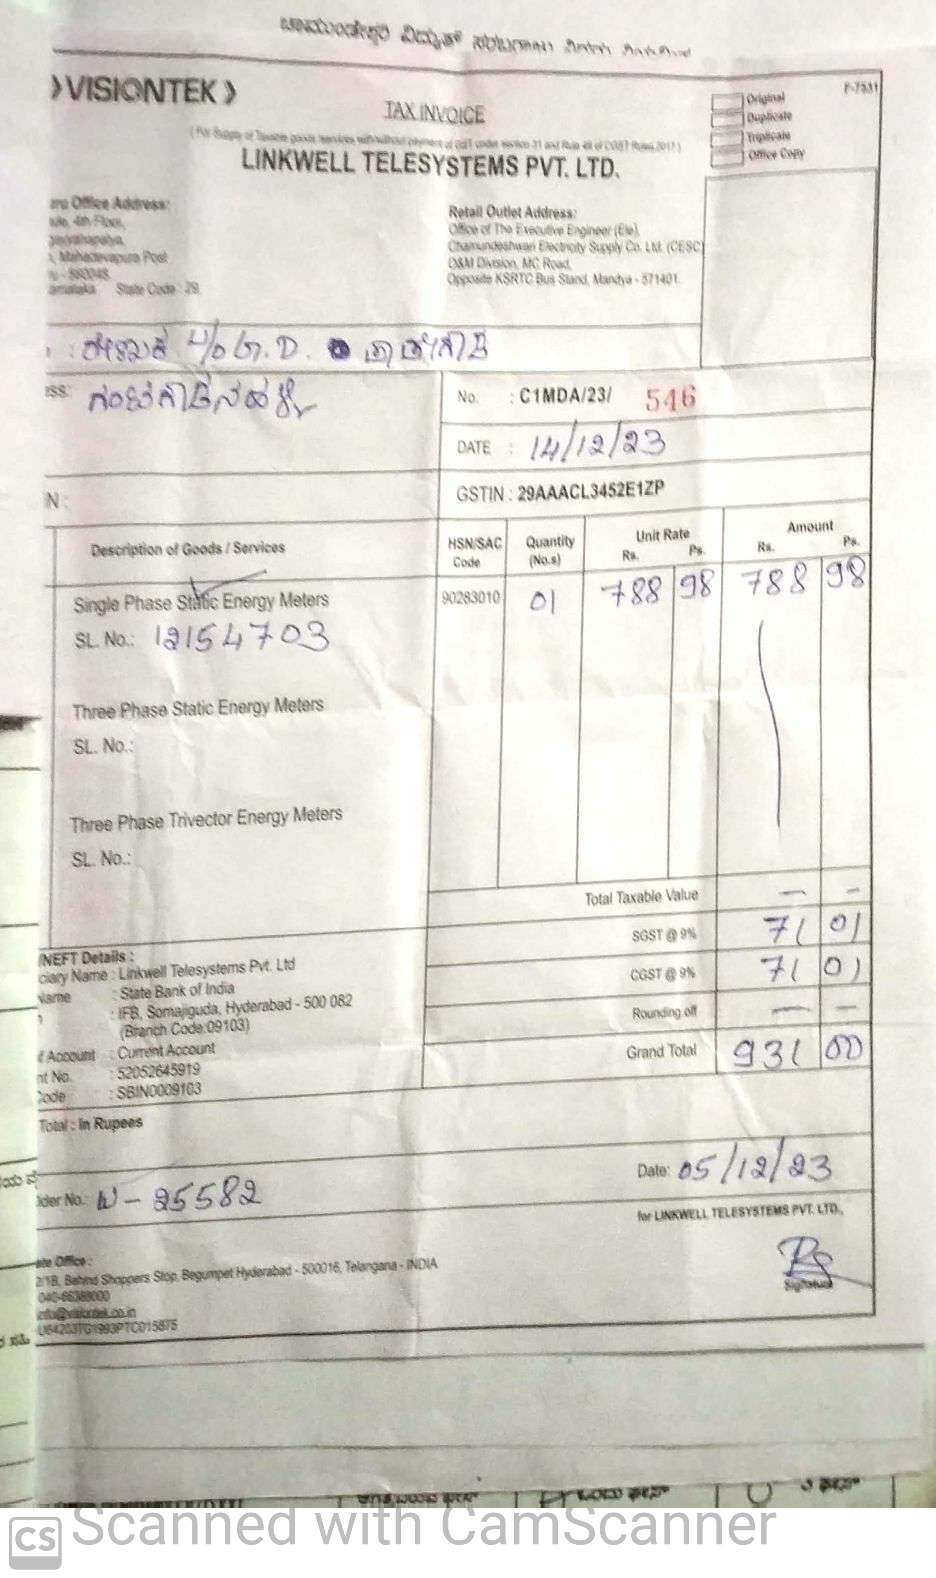 VISIONTEK
F-7531
TAX INVOICE
Original
Duplicate
Triplicate
Office Copy
LINKWELL TELESYSTEMS PVT. LTD.
Office Address:
4th Floor,
Mahadevapura Post
State Code : 29.
Retail Outlet Address:
Office of The Executive Engineer (Ele),
Chamundeshwari Electricity Supply Co. Ltd. (CESC)
O&M Division, MC Road,
Opposite KSRTC Bus Stand, Mandya - 571401.
No. : C1MDA/23/ 546
DATE : 14/12/23
N :
GSTIN : 29AAACL3452E1ZP
Description of Goods / Services
HSN/SAC Code
Quantity (No.s)
Unit Rate
Rs. Ps.
Amount
Rs. Ps.
Single Phase Static Energy Meters
90283010 01 788 98 788 98
SL. No.: 12154703
Three Phase Static Energy Meters
SL. No.:
Three Phase Trivector Energy Meters
SL. No.:
Total Taxable Value — —
SGST @ 9% 71 01
CGST @ 9% 71 01
Rounding off — —
Grand Total 931 00
/NEFT Details :
ciary Name : Linkwell Telesystems Pvt. Ltd
Name : State Bank of India
: IFB, Somajiguda, Hyderabad - 500 082
(Branch Code:09103)
f Account : Current Account
nt No. : 52052645919
Code : SBIN0009103
Total : In Rupees
Date: 05/12/23
der No.: W - 25582
for LINKWELL TELESYSTEMS PVT. LTD.,
Signature
ate Office :
2/1B, Behind Shoppers Stop, Begumpet Hyderabad - 500016, Telangana - INDIA
040-66388000
info@visiontek.co.in
U64203TG1993PTC015875
CS Scanned with CamScanner